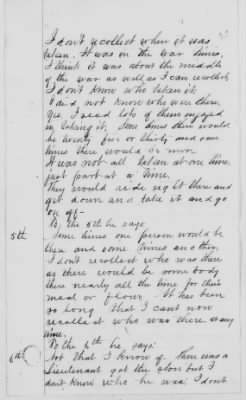 I don't recollect when it was
taken. It was on the war times,
I think it was about the middle
of the war as well as I can recollect,
I don't know who taken it.
I did not know who were there,
yes I seed lots of them engaged
in taking it, Some times there would
be twenty five or thirty and some
times there would be more
It was not all taken at one time
just part at a time,
They would ride right there and
get down and take it and go
on off-
To the 5th he says
5th Some times one person would be
there and some times another,
I don't recollect who was there
as there would be some body
there nearly all the time for their
meal or flour. It has been
so long that I can't now
recollect who was there at any
time.
To the 6th he says
6th Not that I know of. There was a
Lieutenant got the corn but I
don't know who he was I don't